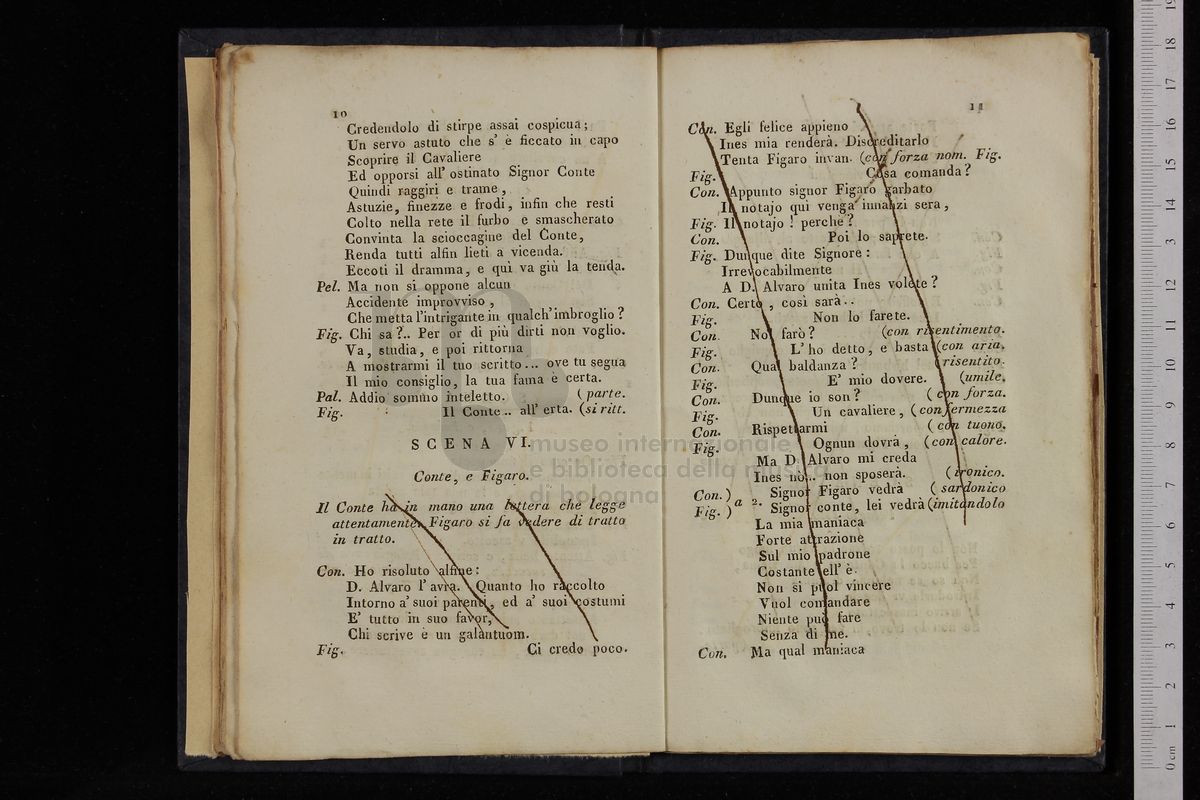 10
Credendolo di stirpe assai cospicua;
Un servo astuto che s' è ficcato in capo
Scoprire il Cavaliere
Ed opporsi all' ostinato Signor Conte
Quindi raggiri e trame,
Astuzie, finezze e frodi, infin che resti
Colto nella rete il furbo e smascherato
Convinta la scioccagine del Conte,
Renda tutti alfin lieti a vicenda.
Eccoti il dramma, e quì va giù la tenda.
Pel. Ma non si oppone alcun
Accidente improvviso,
Che metta l'intrigante in qualch'imbroglio?
Fig. Chi sa?.. Per or di più dirti non voglio.
Va, studia, e poi rittorna
A mostrarmi il tuo scritto... ove tu segua
Il mio consiglio, la tua fama è certa.
Pal. Addio sommo inteletto. (parte.
Fig. Il Conte.. all' erta. (si ritt.
SCENA VI.
Conte, e Figaro.
Il Conte ha in mano una lettera che legge
attentamente, Figaro si fa vedere di tratto
in tratto.
Con. Ho risoluto alfine:
D. Alvaro l' avrà. Quanto ho raccolto
Intorno a' suoi parenti, ed a' suoi costumi
E' tutto in suo favor,
Chi scrive è un galantuom.
Fig. Ci credo poco.
11
Con. Egli felice appieno
Ines mia renderà. Discreditarlo
Tenta Figaro invan. (con forza nom. Fig.
Fig. Cosa comanda?
Con. Appunto signor Figaro garbato
Il notajo quì venga innanzi sera,
Fig. Il notajo! perche?
Con. Poi lo saprete.
Fig. Dunque dite Signore:
Irrevocabilmente
A D. Alvaro unita Ines volete?
Con. Certo, così sarà..
Fig. Non lo farete.
Con. Nol farò? (con risentimento.
Fig. L' ho detto, e basta (con aria.
Con. Qual baldanza? (risentito.
Fig. E' mio dovere. (umile.
Con. Dunque io son? (con forza.
Fig. Un cavaliere, (con fermezza
Con. Rispettarmi (con tuono.
Fig. Ognun dovrà, (con calore.
Ma D. Alvaro mi creda
Ines no... non sposerà. (ironico.
Con.) a 2. Signor Figaro vedrà (sardonico
Fig.) Signor conte, lei vedrà (imitandolo
La mia maniaca
Forte attrazione
Sul mio padrone
Costante ell' è.
Non si puol vincere
Vuol comandare
Niente può fare
Senza di me.
Con. Ma qual maniaca
museo internazionale
e biblioteca della musica
di bologna